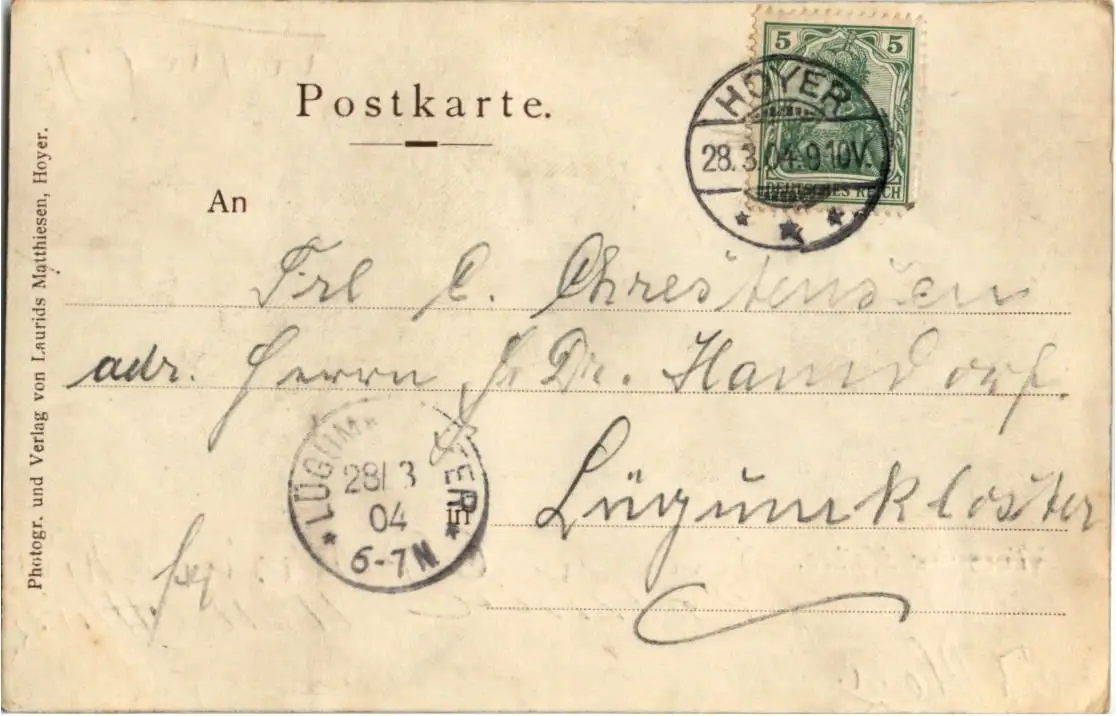 Postkarte.
5 5
DEUTSCHES REICH
HOYER
28.3.04.9 10V.
An
Frl C. Chrestensen
adr. Herrn Dr. Hamdorf.
LÜGUM TER
28 3
04
6-7 N
in Lügumkloster
Photogr. und Verlag von Laurids Matthiesen, Hoyer.